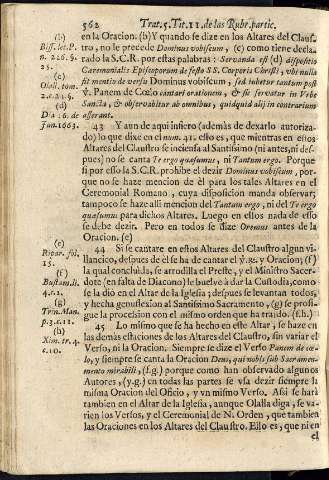 562 Trat. 5. Tit. 11. de las Rubr. partic.
(b)
Biss. let. P.
n. 226. §.
25.
(c)
Olall. tom.
2. c. 21. §.
Dia: 6. de
Jun. 1663.
en la Oracion. (b) Y quando se dize en los Altares del Claus-
tro, no le precede Dominus vobiscum, (c) como tiene decla-
rado la S.C.R. por estas palabras: Servanda est (d) dispositio
Ceremonialis Episcoporum de festo SS. Corporis Christi; vbi nulla
fit mentio de versu Dominus vobiscum, debet iudicet tantum post
℣. Panem de Cœlo cantari orationem, & sic servatur in Vrbe
Sancta, & observabitur ab omnibus, quidquid alij in contrarium
asserant.
43 Y aun de aqui infiero (además de dexarlo autoriza-
do) lo que dixe en el num. 41. esso es, que mientras en estos
Altares del Claustro se inciensa al Santissimo (ni antes, ni des-
pues) no se canta Te ergo quæsumus, ni Tantum ergo. Porque
si por esso la S.C.R. prohibe el dezir Dominus vobiscum, por-
que no se haze mencion de èl para los tales Altares en el
Ceremonial Romano, cuya disposicion manda observar;
tampoco se haze alli mencion del Tantum ergo, ni del Te ergo
quæsumus para dichos Altares. Luego en ellos nada de esso
se debe dezir. Pero en todos se dize Oremus antes de la
Oracion. (e)
(e)
Ribar. fol.
15.
(f)
Bustam. li.
4. c. 2.
(g)
Trin. Man.
p. 3. c. 11.
(h)
Xim. tr. 4.
c. 10.
44 Si se cantare en estos Altares del Claustro algun vi-
llancico, despues de èl se ha de cantar el ℣. ℟. y Oracion; (f)
la qual concluìda, se arrodilla el Preste, y el Ministro Sacer-
dote (en falta de Diacono) le buelve à dar la Custodia, como
se la diò en el Altar de la Iglesia; despues se levantan todos,
y hecha genuflexion al Santissimo Sacramento, (g) se prosi-
gue la procesion con el mismo orden que ha traìdo. (f.h.)
45 Lo mismo que se ha hecho en este Altar, se haze en
las demàs estaciones de los Altares del Claustro, sin variar el
Verso, ni la Oracion. Siempre se dize el Verso Panem de cœ-
lo, y siempre se canta la Oracion Deus, qui nobis sub Sacramen-
mento mirabili, (f.g.) porque como han observado algunos
Autores, (y.g.) en todas las partes se vsa dezir siempre la
misma Oracion del Oficio, y vn mismo Verso. Assi se harà
tambien en el Altar de la Iglesia, aunque Olalla diga, se va-
rien los Versos, y el Ceremonial de N. Orden, que tambien
las Oraciones en los Altares del Claustro. Ello es, que ni en
el